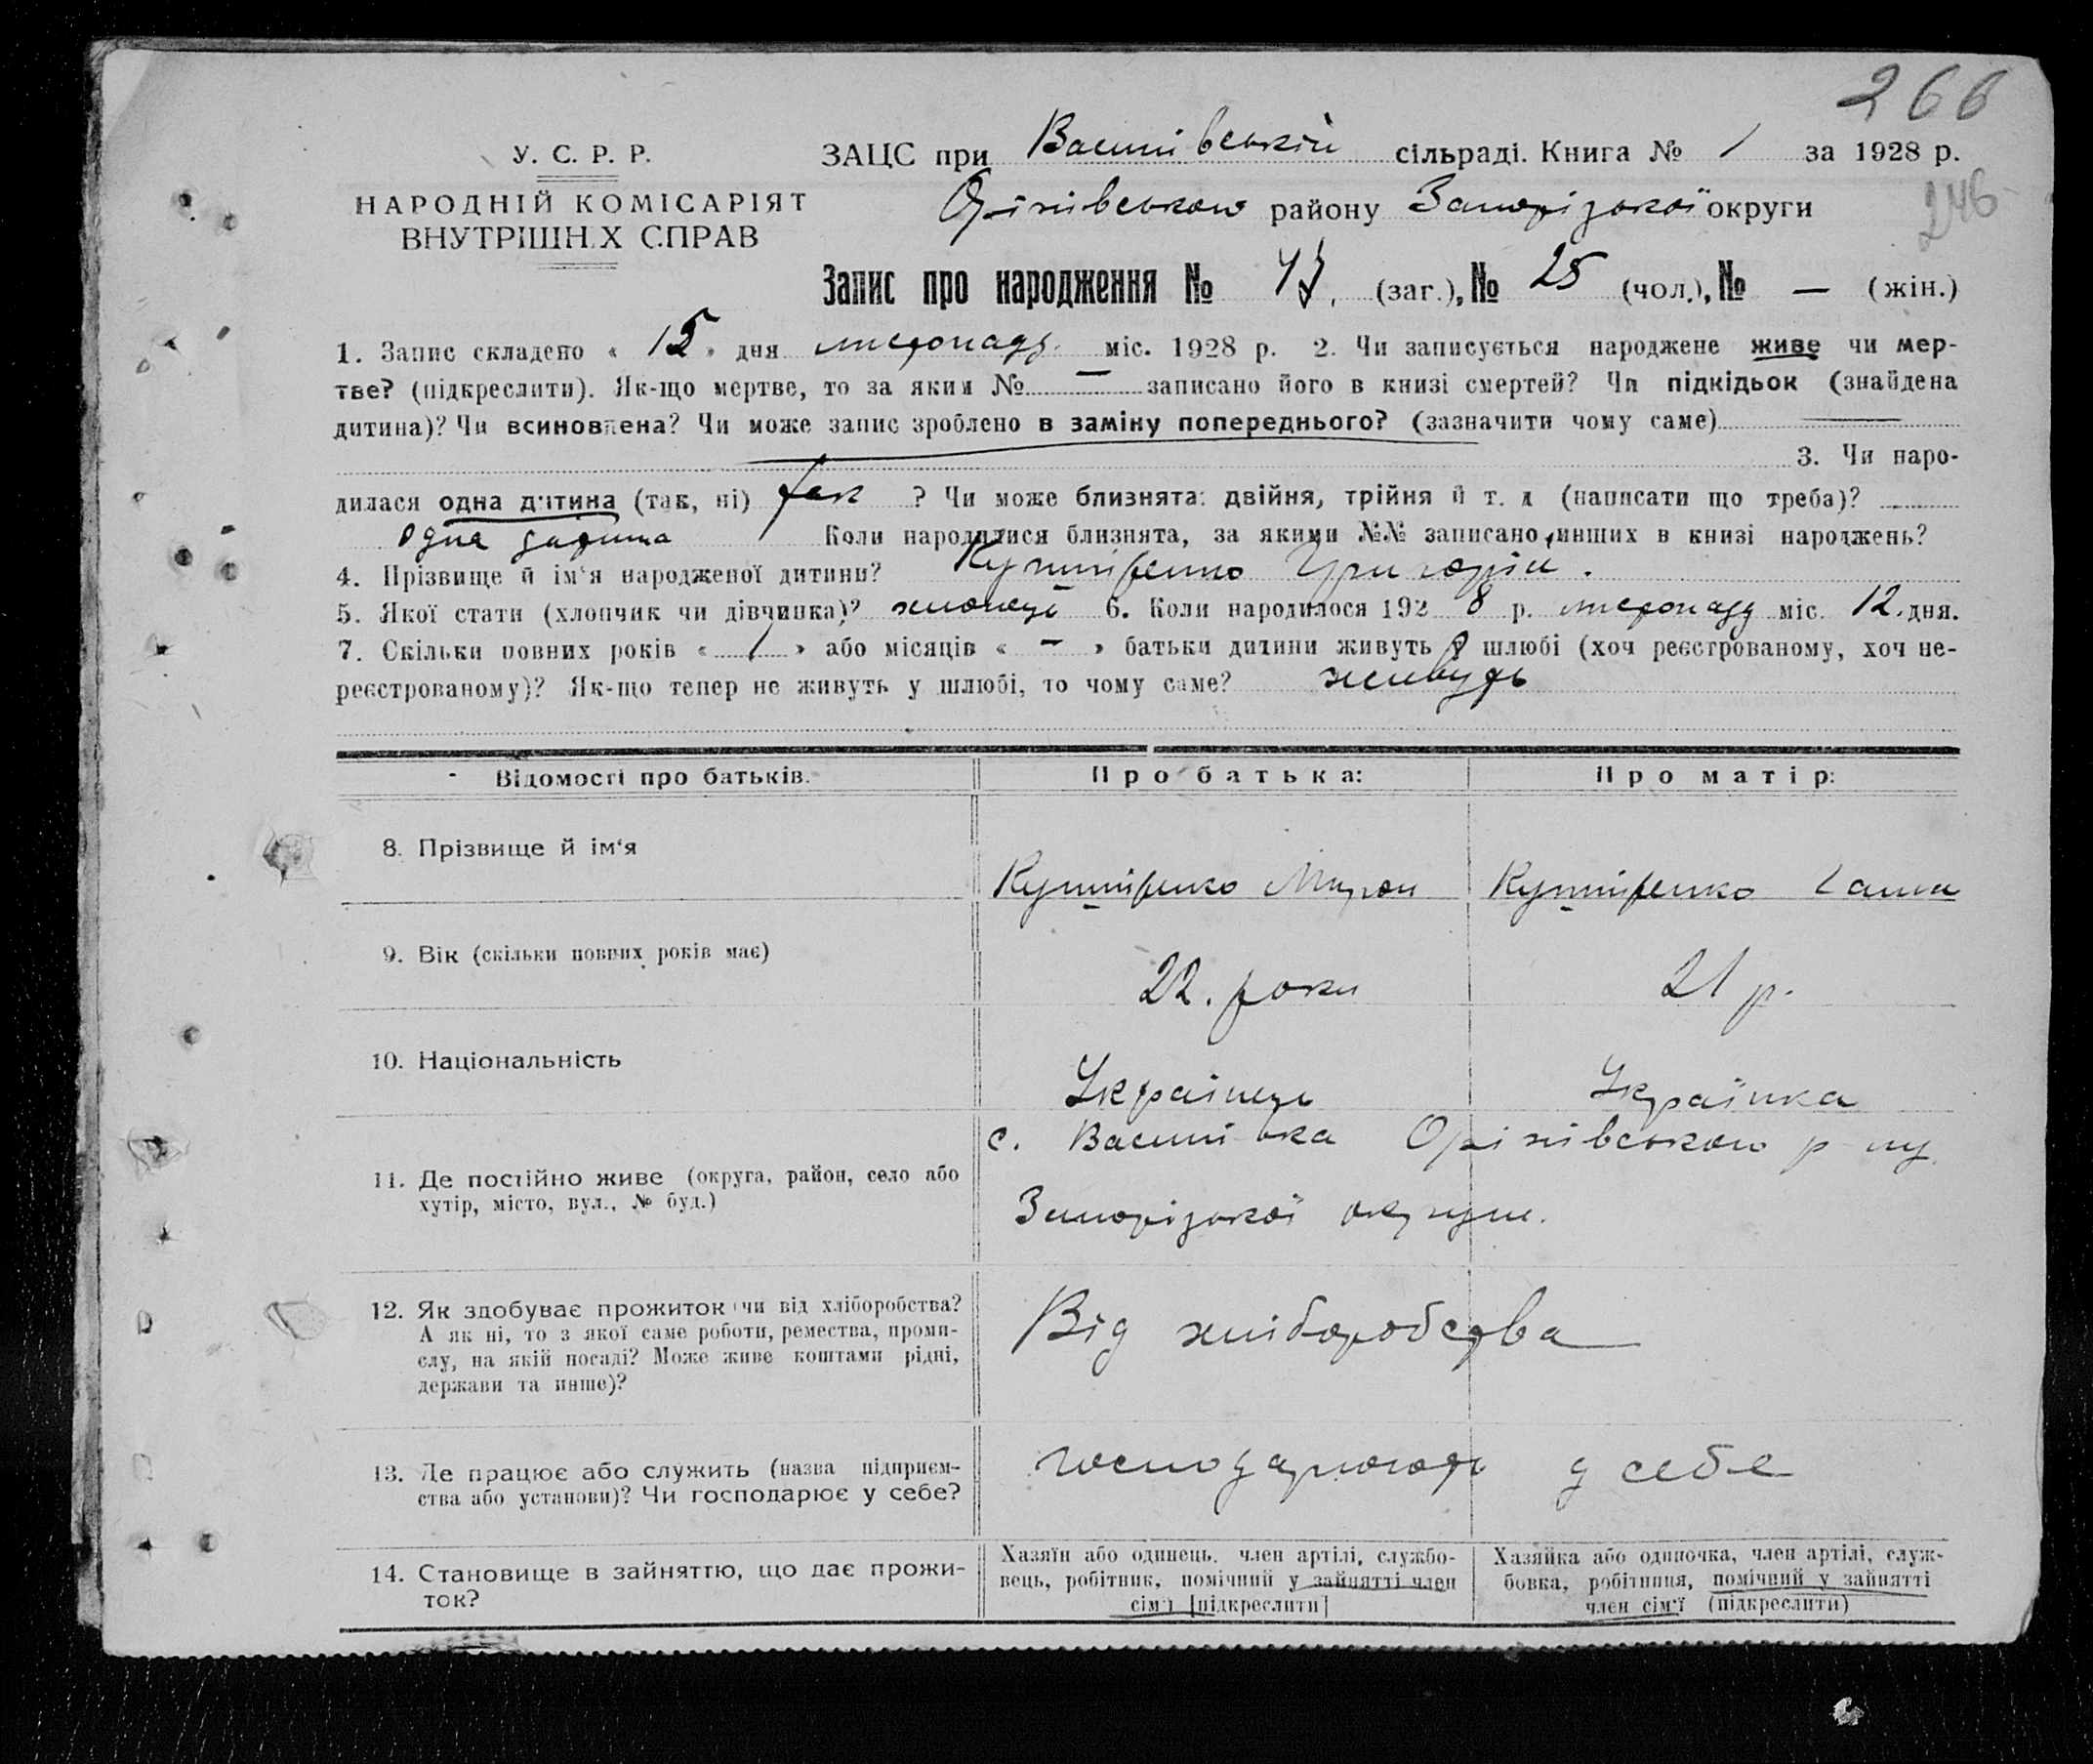 266
У. С. Р. Р.
НАРОДНІЙ КОМІСАРІЯТ
ВНУТРІШНІХ СПРАВ
ЗАЦС при Василівській сільраді. Книга № 1 за 1928 р.
246
Оріхівського району Запорізької округи
Запис про народження № (заг.), № 25 (чол.), № — (жін.)
1. Запис складено « 15 » дня листопада міс. 1928 р. 2. Чи записується народжене живе чи мер-
тве? (підкреслити). Як-що мертве, то за яким № — записано його в книзі смертей? Чи підкідьок (знайдена
дитина)? Чи всиновлена? Чи може запис зроблено в заміну попереднього? (зазначити чому саме) —
3. Чи наро-
дилася одна дитина (так, ні) так ? Чи може близнята: двійня, трійня й т. д (написати що треба)?
одна дитина Коли народилися близнята, за якими №№ записано инших в книзі народжень?
4. Прізвище й ім'я народженої дитини? Григорій.
5. Якої стати (хлопчик чи дівчинка)? хлопець 6. Коли народилося 192 8 р. листопада міс. 12. дня.
7. Скільки повних років « 1 » або місяців « – » батьки дитини живуть у шлюбі (хоч реєстрованому, хоч не-
реєстрованому)? Як-що тепер не живуть у шлюбі, то чому саме? живуть
Відомості про батьків. Про батька: Про матір:
8. Прізвище й ім'я
Мирон
9. Вік (скільки повних років має)
22. роки 21 р.
10. Національність
Українець Українка
11. Де постійно живе (округа, район, село або
хутір, місто, вул., № буд.)
с. Василівка Оріхівського р-ну
Запорізької округи.
12. Як здобуває прожиток чи від хліборобства?
А як ні, то з якої саме роботи, ремества, проми-
слу, на якій посаді? Може живе коштами рідні,
держави та инше)?
Від хліборобства
13. Де працює або служить (назва підприєм-
ства або установи)? Чи господарює у себе?
господарюють у себе
14. Становище в зайняттю, що дає прожи-
ток?
Хазяїн або одинець, член артілі, службо-
вець, робітник, помічний у зайнятті член
сім'ї [підкреслити]
Хазяйка або одиночка, член артілі, служ-
бовка, робітниця, помічний у зайнятті
член сім'ї (підкреслити)